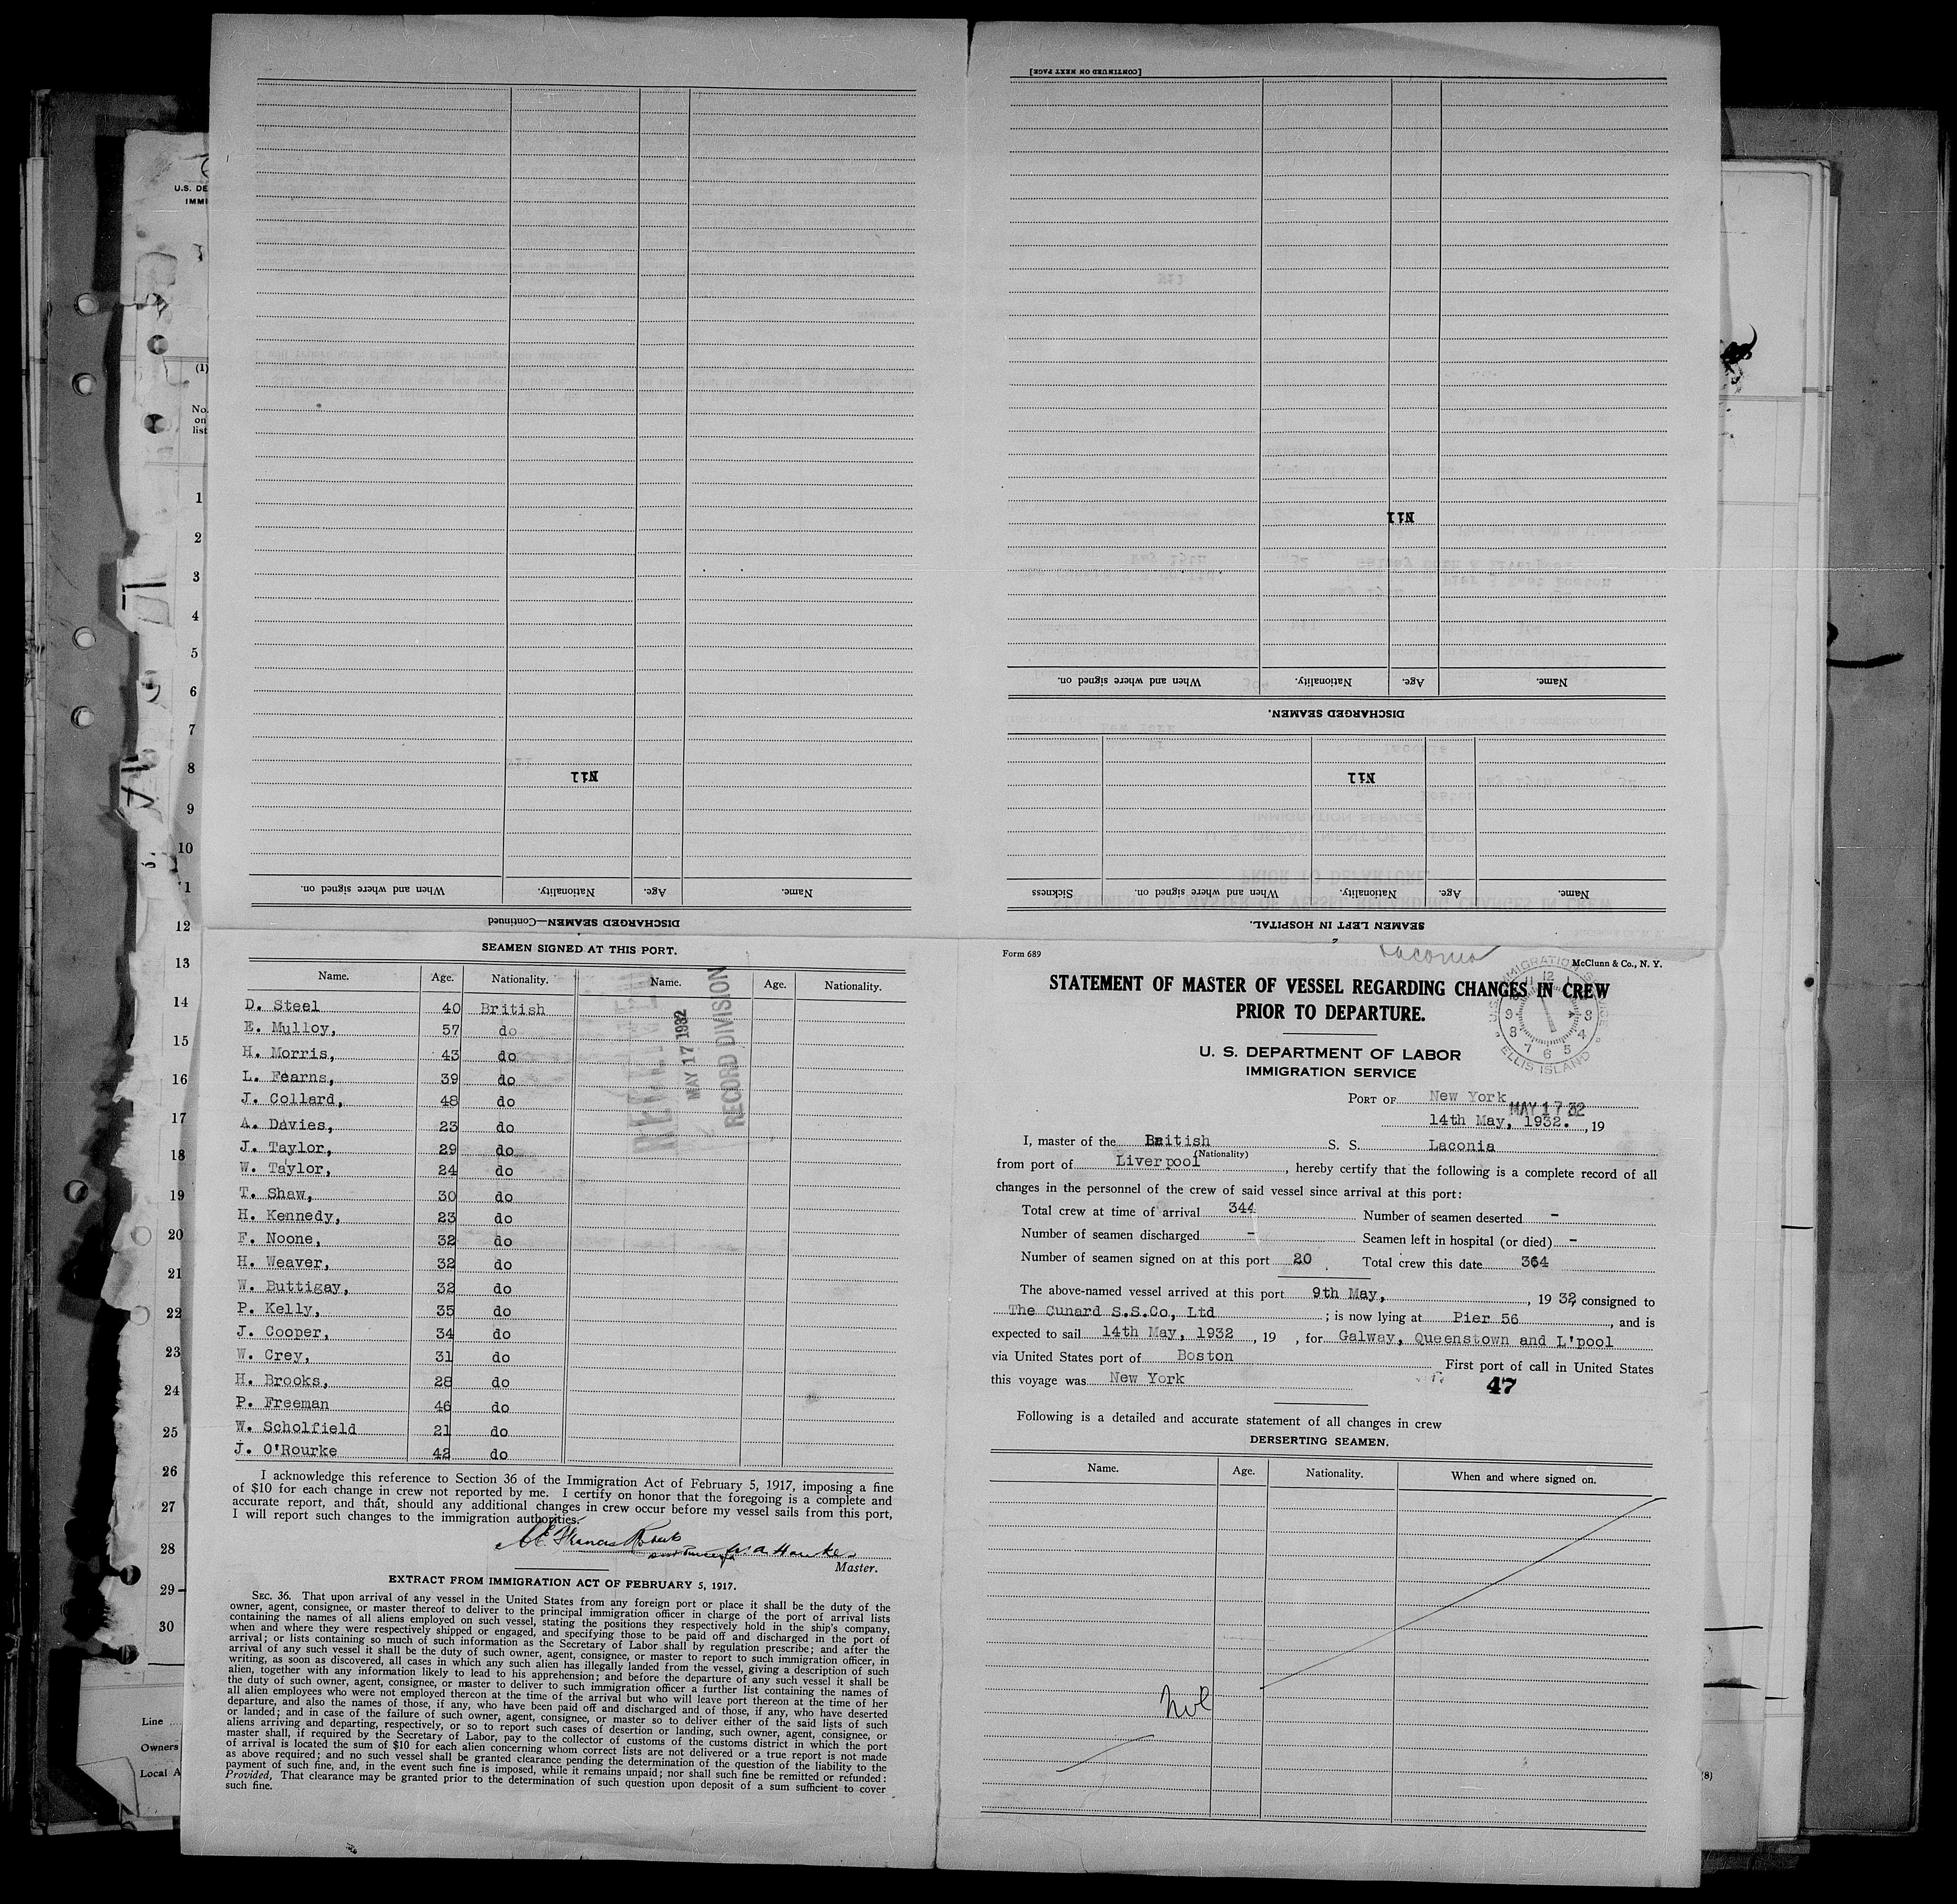 [CONTINUED ON NEXT PAGE]
Nil
When and where signed on. Nationality. Age. Name.
DISCHARGED SEAMEN.
Nil
Sickness When and where signed on. Nationality. Age. Name.
SEAMEN LEFT IN HOSPITAL.
Nil
When and where signed on. Nationality. Age. Name.
DISCHARGED SEAMEN—Continued
U.S. DE
IMMI
(1)
No.
on
list
1
2
3
4
5
6
7
8
9
10
11
12
13
14
15
16
17
18
19
20
21
22
23
24
25
26
27
28
29
30
Line
Owners
Local A
(8)
SEAMEN SIGNED AT THIS PORT.
Name. Age. Nationality. Name. Age. Nationality.
D. Steel 40 British
E. Mulloy, 57 do
H. Morris, 43 do
L. Fearns, 39 do
J. Collard, 48 do
A. Davies, 23 do
J. Taylor, 29 do
W. Taylor, 24 do
T. Shaw, 30 do
H. Kennedy, 23 do
F. Noone, 32 do
H. Weaver, 32 do
W. Buttigay, 32 do
P. Kelly, 35 do
J. Cooper, 34 do
W. Crey, 31 do
H. Brooks, 28 do
P. Freeman 46 do
W. Scholfield 21 do
J. O'Rourke 42 do
RECEIVED
MAY 17 1932
RECORD DIVISION
I acknowledge this reference to Section 36 of the Immigration Act of February 5, 1917, imposing a fine
of $10 for each change in crew not reported by me. I certify on honor that the foregoing is a complete and
accurate report, and that, should any additional changes in crew occur before my vessel sails from this port,
I will report such changes to the immigration authorities.
Francis Roberts
W. A Hawkes
Master.
EXTRACT FROM IMMIGRATION ACT OF FEBRUARY 5, 1917.
SEC. 36. That upon arrival of any vessel in the United States from any foreign port or place it shall be the duty of the
owner, agent, consignee, or master thereof to deliver to the principal immigration officer in charge of the port of arrival lists
containing the names of all aliens employed on such vessel, stating the positions they respectively hold in the ship's company,
when and where they were respectively shipped or engaged, and specifying those to be paid off and discharged in the port of
arrival; or lists containing so much of such information as the Secretary of Labor shall by regulation prescribe; and after the
arrival of any such vessel it shall be the duty of such owner, agent, consignee, or master to report to such immigration officer, in
writing, as soon as discovered, all cases in which any such alien has illegally landed from the vessel, giving a description of such
alien, together with any information likely to lead to his apprehension; and before the departure of any such vessel it shall be
the duty of such owner, agent, consignee, or master to deliver to such immigration officer a further list containing the names of
all alien employees who were not employed thereon at the time of the arrival but who will leave port thereon at the time of her
departure, and also the names of those, if any, who have been paid off and discharged and of those, if any, who have deserted
or landed; and in case of the failure of such owner, agent, consignee, or master so to deliver either of the said lists of such
aliens arriving and departing, respectively, or so to report such cases of desertion or landing, such owner, agent, consignee, or
master shall, if required by the Secretary of Labor, pay to the collector of customs of the customs district in which the port
of arrival is located the sum of $10 for each alien concerning whom correct lists are not delivered or a true report is not made
as above required; and no such vessel shall be granted clearance pending the determination of the question of the liability to the
payment of such fine, and, in the event such fine is imposed, while it remains unpaid; nor shall such fine be remitted or refunded:
Provided, That clearance may be granted prior to the determination of such question upon deposit of a sum sufficient to cover
such fine.
Laconia
Form 689 McClunn & Co., N. Y.
STATEMENT OF MASTER OF VESSEL REGARDING CHANGES IN CREW
PRIOR TO DEPARTURE.
U. S. DEPARTMENT OF LABOR
IMMIGRATION SERVICE
U.S. IMMIGRATION SERVICE
ELLIS ISLAND
PORT OF New York
MAY 17 32
14th May, 1932. , 19
I, master of the British S. S. Laconia
(Nationality)
from port of Liverpool , hereby certify that the following is a complete record of all
changes in the personnel of the crew of said vessel since arrival at this port:
Total crew at time of arrival 344 Number of seamen deserted -
Number of seamen discharged - Seamen left in hospital (or died) -
Number of seamen signed on at this port 20 Total crew this date 364
The above-named vessel arrived at this port 9th May, , 19 32, consigned to
The Cunard S.S.Co, Ltd ; is now lying at Pier 56 , and is
expected to sail 14th May, 1932 , 19 , for Galway, Queenstown and L'pool
via United States port of Boston First port of call in United States
this voyage was New York
47
Following is a detailed and accurate statement of all changes in crew
DERSERTING SEAMEN.
Name. Age. Nationality. When and where signed on.
Nil